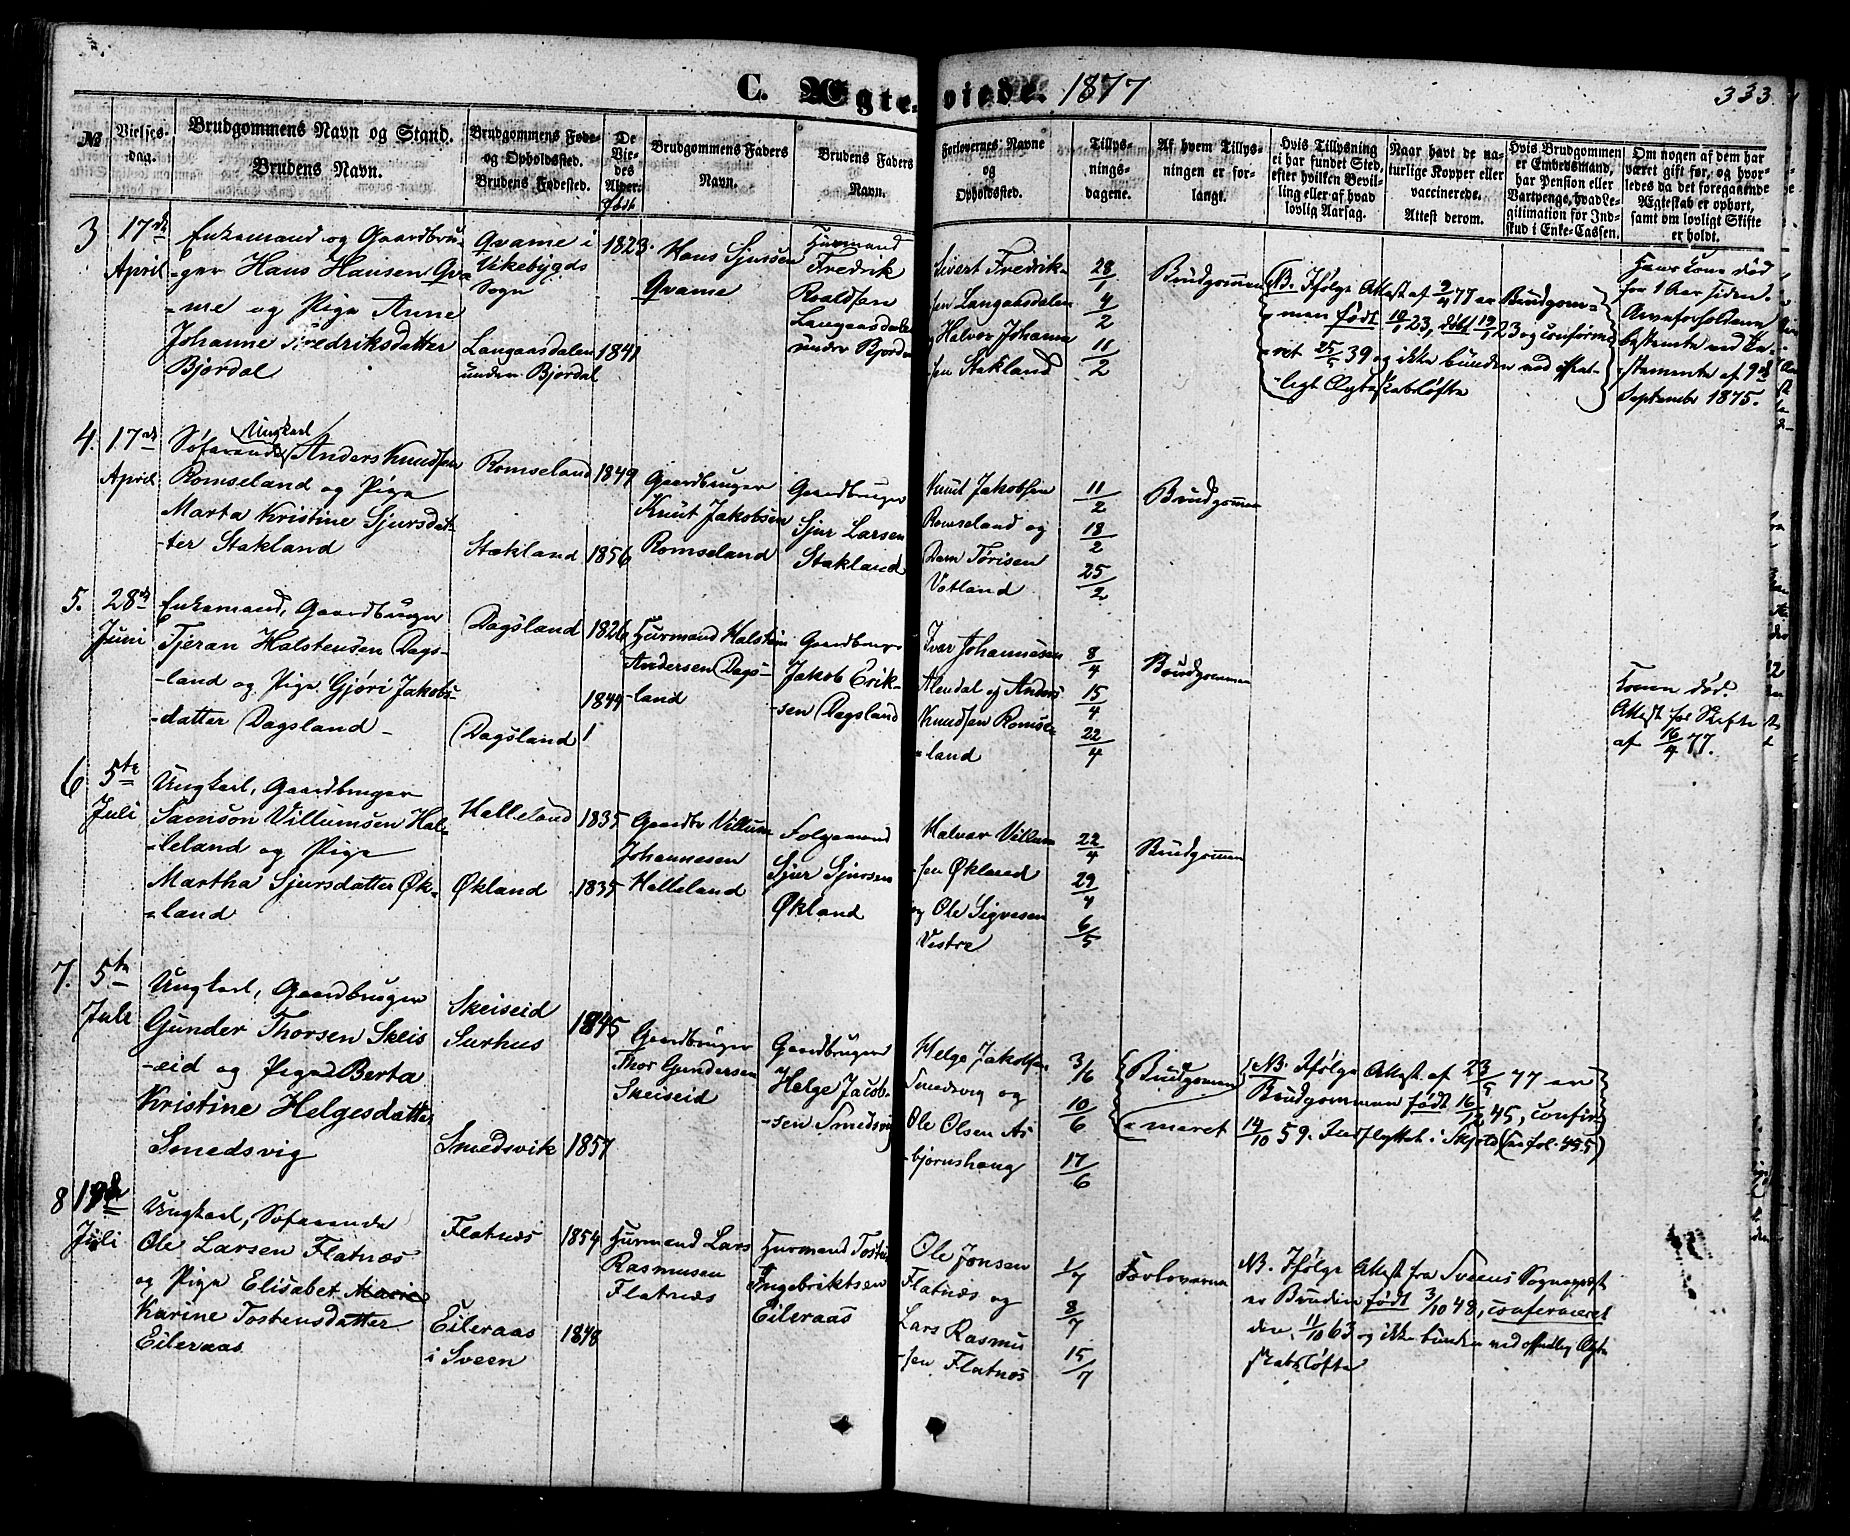 C. Ægte-viede. 1877
333
№
Vielses-
dag.
Brudgommens Navn og Stand.
Brudens Navn.
Brudgommens Føde-
og Opholdssted.
Brudens Fødested.
De
Vie-
des
Alder.
født
Brudgommens Faders
Navn.
Brudens Faders
Navn.
Forlovernes Navne
og
Opholdssted.
Tillys-
nings-
dagene.
Af hvem Tillys-
ningen er for-
langt.
Hvis Tillysning
ei har fundet Sted,
efter hvilken Bevil-
ling eller af hvad
lovlig Aarsag.
Naar havt de na-
turlige Kopper eller
vaccinerede.
Attest derom.
Hvis Brudgommen
er Embedsmand,
har Pension eller
Vartpenge, hvad Le-
gitimation for Ind-
skud i Enke-Cassen.
Om nogen af dem har
været gift før, og hvor-
ledes da det foregaaende
Ægteskab er ophørt,
samt om lovligt Skifte
er holdt.
3
17de
April
Enkemand og Gaardbru-
-ger Hans Hansen Qva-
-me og Pige Anne
Johanne Fredriksdatter
Bjordal
Qvame i
Vikebygds
Sogn
Langaasdalen
under Bjordal
1823.
1841
Hans Sjursen
Qvame
Huusmand
Fredrik
Roaldsen
Langaasdalen
under Bjordal
Sivert Fredrik-
sen Langaasdalen
og Halvor Johanne-
sen Stakland
28/1
4/2
11/2
Brudgommen
NB. Ifølge Attest af 9/4 77 er Brudgom-
-men født 10/1 23, døbt 19/1 23 og confirme-
-ret 25/5 39 og ikke bunden ved offent-
-ligt Ægteskabsløfte
Hans Kone død
for 1 Aar siden.
Arveforholdene
bestemte ved Te-
-stamente af 9de
September 1875.
4.
17de
April
Ungkarl
Søfarende Anders Knudsen
Romseland og Pige
Marta Kristine Sjursdat-
-ter Stakland
Romseland
Stakland
1849
1856
Gaardbruger
Knut Jakobsen
Romseland
Gaardbruger
Sjur Larsen
Stakland
Knut Jakobsen
Romseland og
Tørisen
Votland
11/2
18/2
25/2
Brudgommen
5.
28de
Juni
Enkemand, Gaardbruger
Tjeran Halstensen Dags-
-land og Pige Gjøri Jakobs-
-datter Dagsland -
Dagsland
Dagsland
1826
1844
Huusmand Halstein
Andersen Dags-
-land
Gaardbruger
Jakob Erik-
-sen Dagsland
Ivar Johannesen
Alendal og Anders
Knudsen Romse-
-land
8/4
15/4
22/4
Brudgommen
Konen død.
Attest for Skifte
af 16/4 77.
6
5te
Juli
Ungkarl, Gaardbruger
Samson Villumsen Hal-
-leland og Pige
Martha Sjursdatter Øk-
-land
Halleland
Økland
1835
1835
Gaardbr Villum
Johannesen
Halleland
Folgemand
Sjur Sjursen
Økland
Halvor Villum-
-sen Økland
og Ole Sigvesen
Vestre
22/4
29/4
6/5
Brudgommen
7.
5te
Juli
Ungkarl, Gaardbruger
Gunder Thorsen Skeis-
-eid og Pige Berta
Kristine Helgesdatter
Smedsvig
Skeiseid
Surhus
Smedsvik
1845
1857
Gaardbruger
Thor Gundersen
Skeiseid
Gaardbruger
Helge Jacob-
-sen Smedsvig
Helge Jakobsen
Smedsvig og
Ole Olsen As-
-bjørnshaug
3/6
10/6
17/6
Brudgommen
NB. Ifølge Attest af 23/5 77 er
Brudgommen født 16/12 45, confir-
-meret 14/10 59. Indflyttet i Skjold (se fol. 455)
8
19de
Juli
Ungkarl, Søfarende
Ole Larsen Flatnæs
og Pige Elisabet Marie
Karine Tostensdatter
Eileraas
Flatnæs
Eileraas
i Sveen
1854
1848
Huusmand Lars
Rasmusen
Flatnæs
Huusmand Tosten
Ingebriktsen
Eileraas
Ole Jonsen
Flatnæs og
Lars Rasmu-
-sen Flatnæs
1/7
8/7
15/7
Forloverne
NB. Ifølge Attest fra Sveens Sognepræst
er Bruden født 3/10 48, confirmeret
den 11/10 63 og ikke bunden ved offentlig Ægte-
skabsløfte